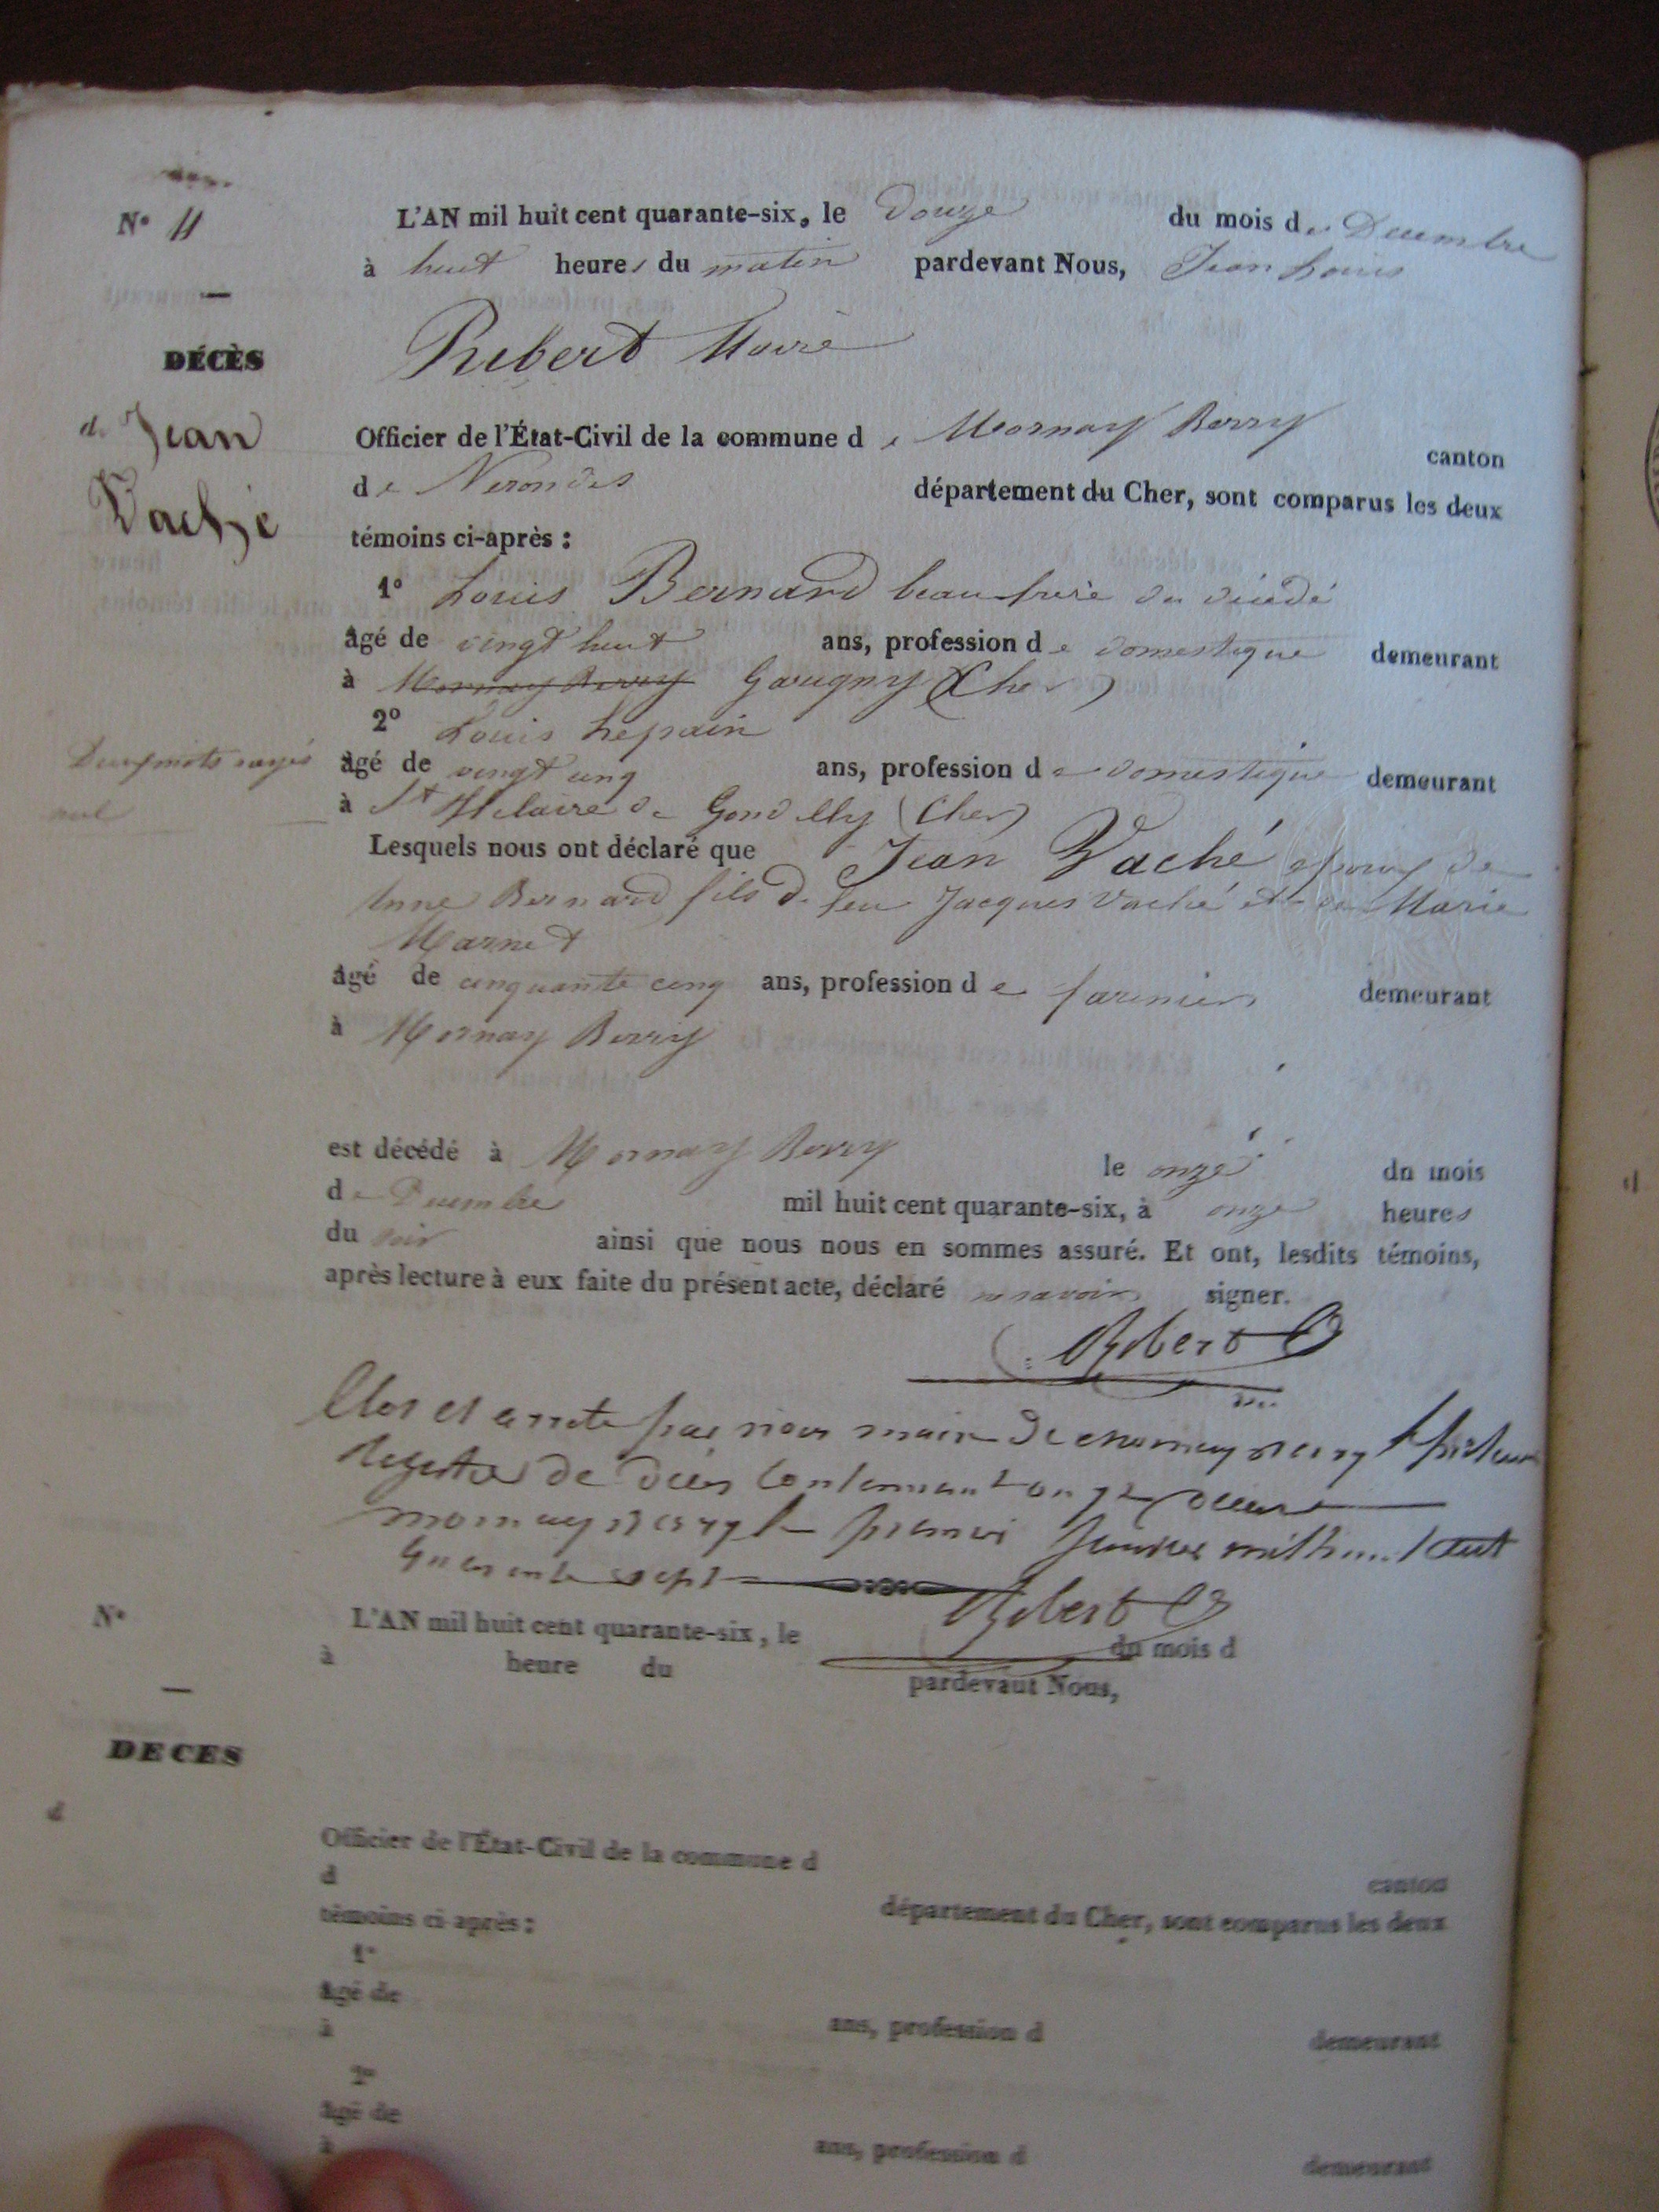 N° 11
L'AN mil huit cent quarante-six, le Douze du mois de Decembre
à huit heures du matin pardevant Nous, Jean Louis
Maire
DÉCÈS
de Jean
Vaché
Officier de l'État-Civil de la commune de Mornay Berry canton
de Nerondes département du Cher, sont comparus les deux
témoins ci-après :
1° Louis Bernard beau frere du décédé
âgé de vingt huit ans, profession de domestique demeurant
à Mornay Berry (Cher)
2° Louis Lepain
Deux mots rayés
nul
âgé de vingt cinq ans, profession de domestique demeurant
à St Hilaire de Gondilly (Cher)
Lesquels nous ont déclaré que Jean Vaché epoux de
Anne Bernard fils de feu Jacques Vaché et de Marie
Marnet
âgé de cinquante cinq ans, profession de demeurant
à Mornay Berry
est décédé à Mornay Berry le onze du mois
de Decembre mil huit cent quarante-six, à onze heures
du soir ainsi que nous nous en sommes assuré. Et ont, lesdits témoins,
après lecture à eux faite du présent acte, déclaré ne savoir signer.
Clos et arrete par nous maire de mornay Berry le
Registre de déces contennant onze
mornay Berry le premier mil huit cent
quarente sept
N°
L'AN mil huit cent quarante-six, le du mois d
à heure du pardevant Nous,
DECES
d
Officier de l'État-Civil de la commune d canton
d département du Cher, sont comparus les deux
témoins ci après :
1°
âgé de ans, profession d demeurant
à
2°
âgé de ans, profession d demeurant
à